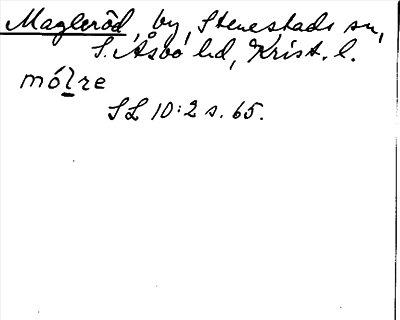 Magleröd, by, Stenestads sn,
S. Åsbo hd, Krist. l.
mólre
SL 10:2 s. 65.